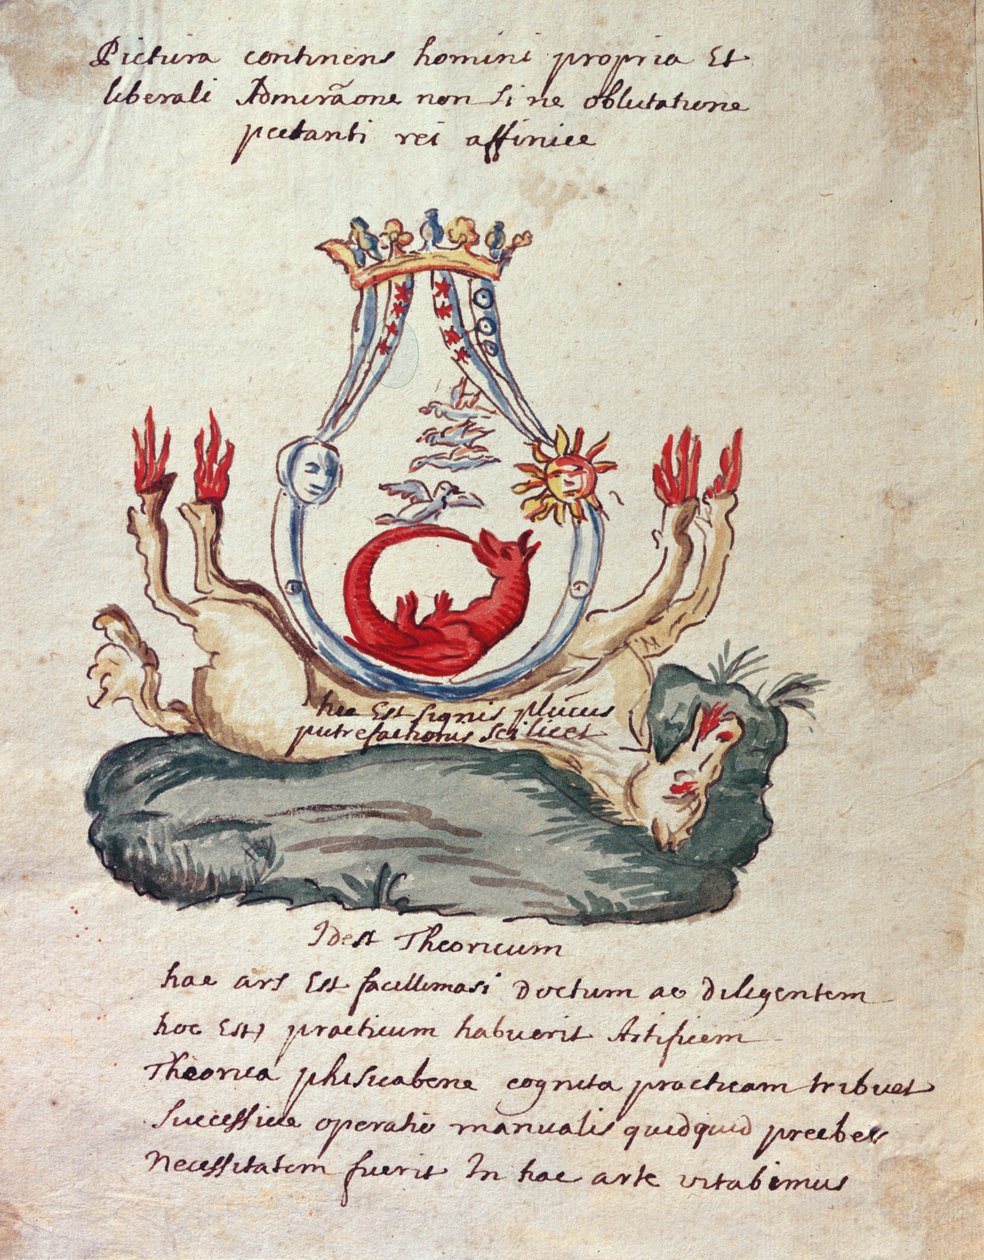 Pictura continens homini propria Et
liberali Admirãone non sine oblutatione
pectanti rei affinice
hec Est signis plũius
putrefactionis scilicet
Idest Theoricum
hae ars Est facillimasi Doctum ac diligentem
hoc Est, practicum habuerit Artificem
Theorica phisicabene cognita practicam tribuet
Successive operatio manualis quidquid preebet
Necessitatem fuerit In hac arte vitabimus